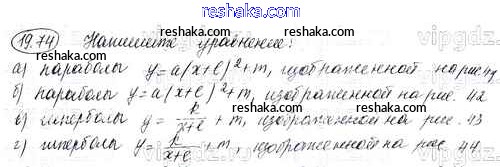 reshaka.com
19.74 Напишите уравнение:
а) параболы y=a(x+l)²+m, изображенной на рис. 41
б) параболы y=a(x+l)²+m, изображенной на рис. 42
в) гиперболы y = k/(x+l) + m, изображенной на рис. 43
г) гиперболы y = k/(x+l) + m, изображенной на рис. 44.
reshaka.com reshaka.com
vipgdz